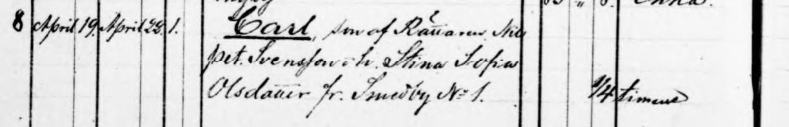 8 April 19. April 28. 1. Carl, son af Råttaren, Nils
pet. Svensson o. h. Stina Sofia
Olsdatter fr. Smedby No 1. 1/4 timme